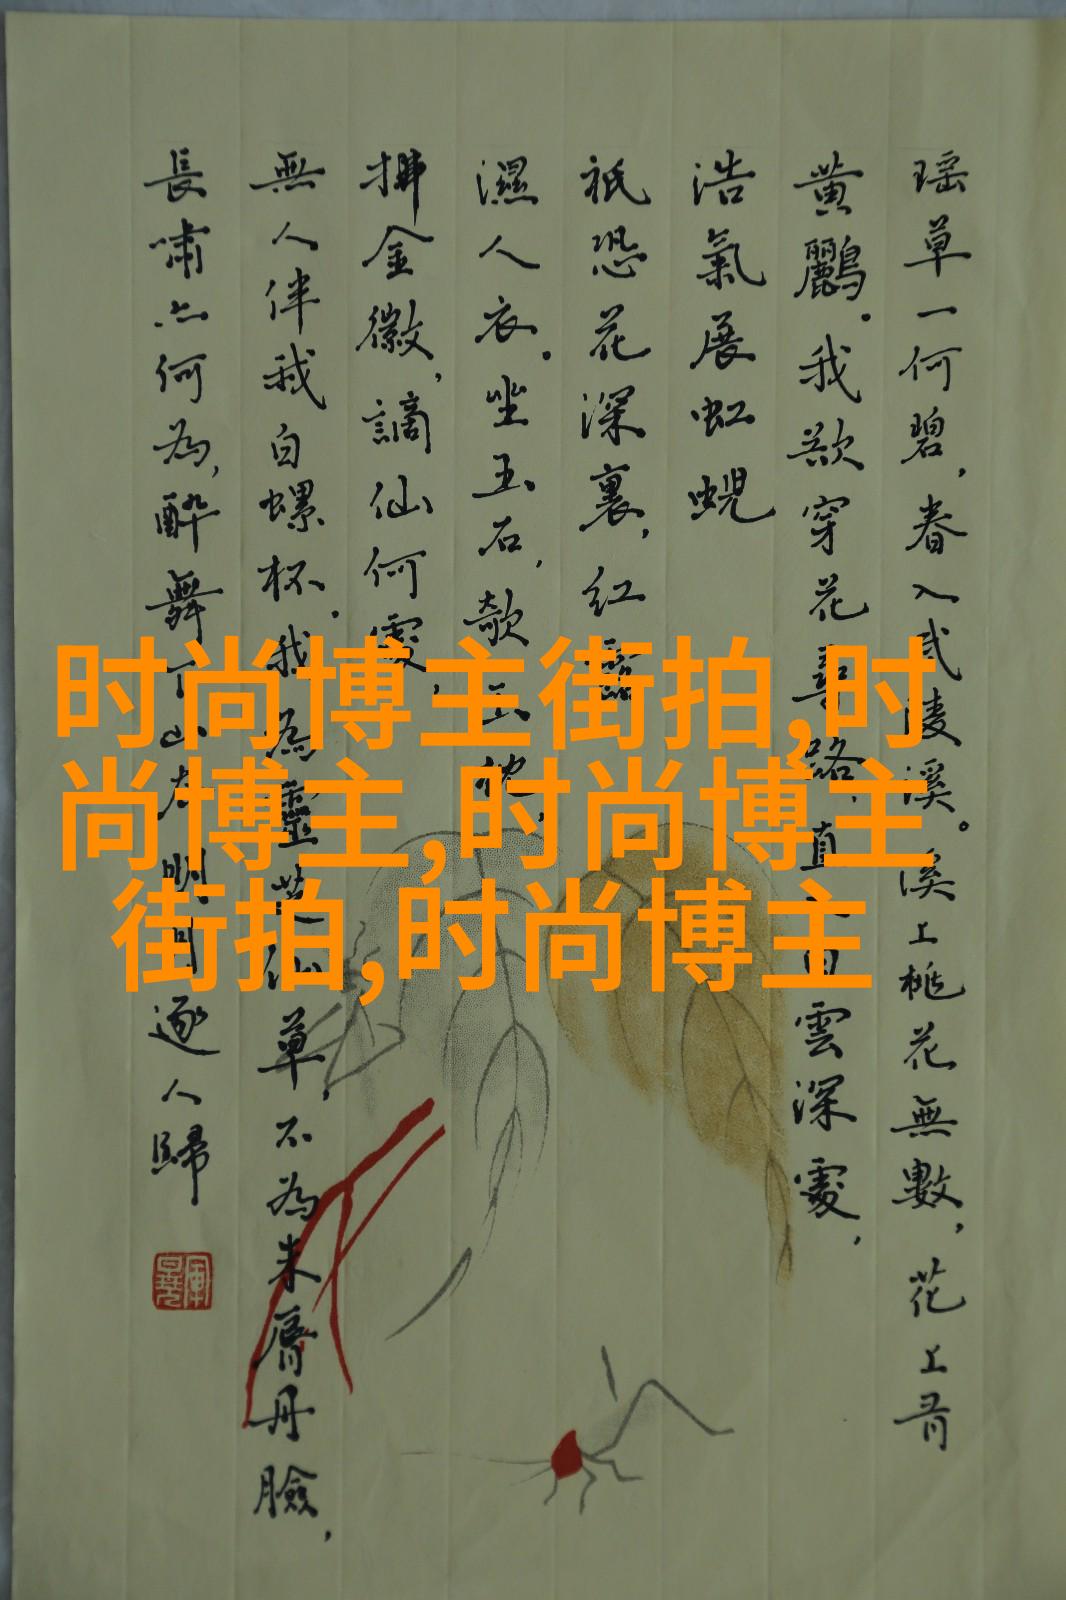 瑶草一何碧，春入武陵溪。溪上桃花無數，花上有
黄鸝。我欲穿花尋路，直入白雲深處，
浩氣展虹蜺
祇恐花深裏，紅露
濕人衣。坐玉石，欹玉枕，
拂金徽，謫仙何處，
無人伴我白螺杯。我為靈芝仙草，不為朱唇丹臉，
長嘯亦何為，醉舞下山去，明月逐人歸
时尚博主街拍,时
尚博主,时尚博主
街拍,时尚博主